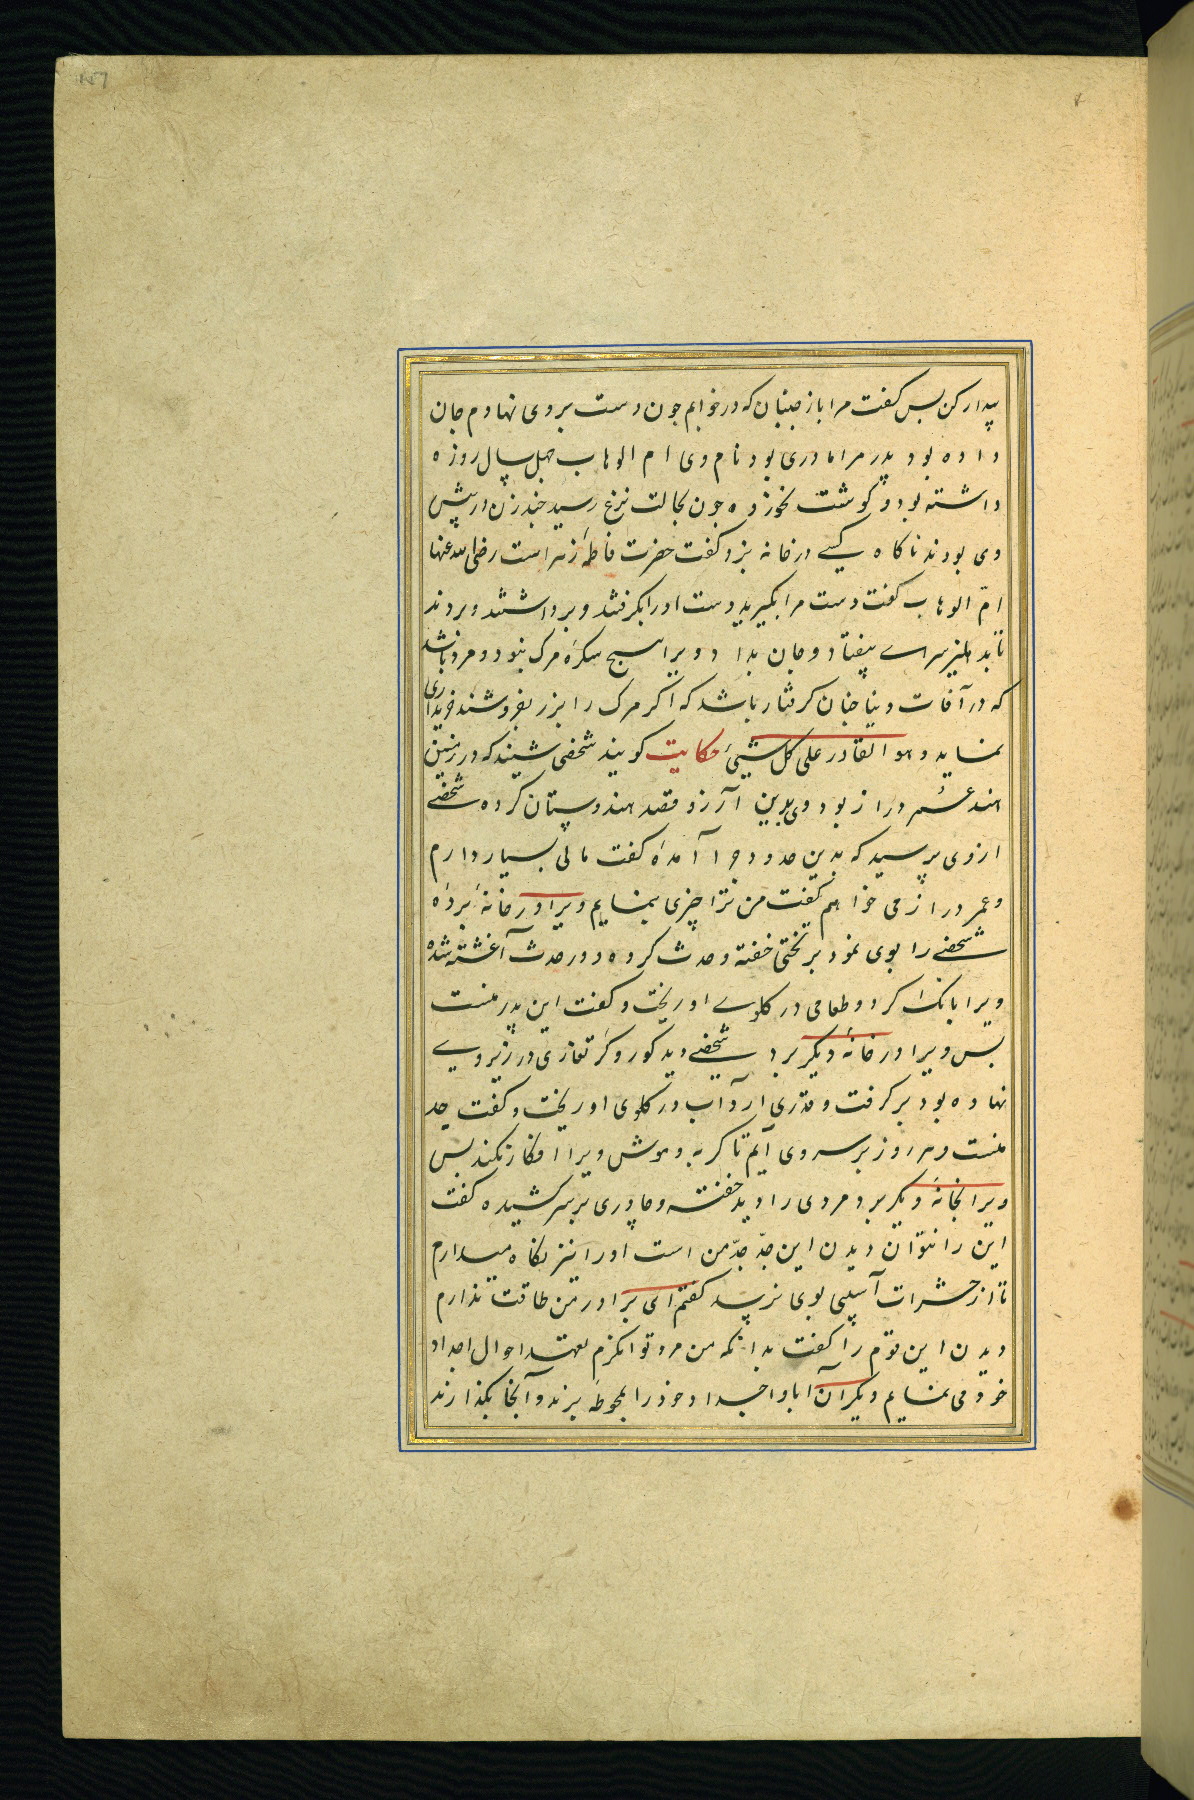 بیدار کن پس گفت مرا باز جنبان که در خوابم چون دست بر وی نهادم جان
داده بود پدر مرا مادری بود نام وی ام الوهاب چهل سال روزه
داشته بود و کوشت نخورده چون بحالت نزع رسید چند زن در پیش
وی بودند ناکاه کسی در خانه بزد گفت حضرت فاطمه زهراست رضی الله عنها
ام الوهاب گفت دست مرا بگیرید دست او را بگرفتند و برداشتند و بردند
تا بدهلیز سرای بیفتاد و جان بداد و ویرا هیچ سکرهٔ مرک نبود و مرد باشد
که در آفات دنیا چنان کرفتار باشد که اکر مرک را بزر بفروشند خریداری
نماید و هو القادر علی کل شیئ حکایت کویند شخصی شنید که در زمین
هند عمر دراز بود وی بدین آرزو قصد هندوستان کرده شخصی
از وی پرسید که بدین حدود چرا آمدهٔ گفت مالی بسیار دارم
و عمر دراز می خواهم گفت من ترا چیزی بنمایم ویرا در خانهٔ برده
شخصی را بوی نمود بر تختی خفته و حدث کرده و در حدث آغشته شده
ویرا بانک کرد و طعامی در کلوی او ریخت و گفت این پدر منست
پس ویرا در خانهٔ دیکر برد شخصی دید کور و کر تغاری در زیر وی
نهاده بود بر کرفت و قدری آرد آب در کلوی او ریخت و گفت جد
منست و هر روز بر سر وی آیم تا کربه و موش ویرا افکار نکند پس
ویرا بخانهٔ دیکر برد مردی را دید خفته و چادری بر سر کشیده گفت
این را نتوان دیدن این جدّ جدّ من است او را نیز نکاه میدارم
تا از حشرات آسیبی بوی نرسد گفتم ای برادر من طاقت ندارم
دیدن این قوم را گفت بدانکه من مرد توانکرم تعهد احوال اجداد
خود می نمایم دیکران آبا و اجداد خود را بمحوطه برند و آنجا بگذارند